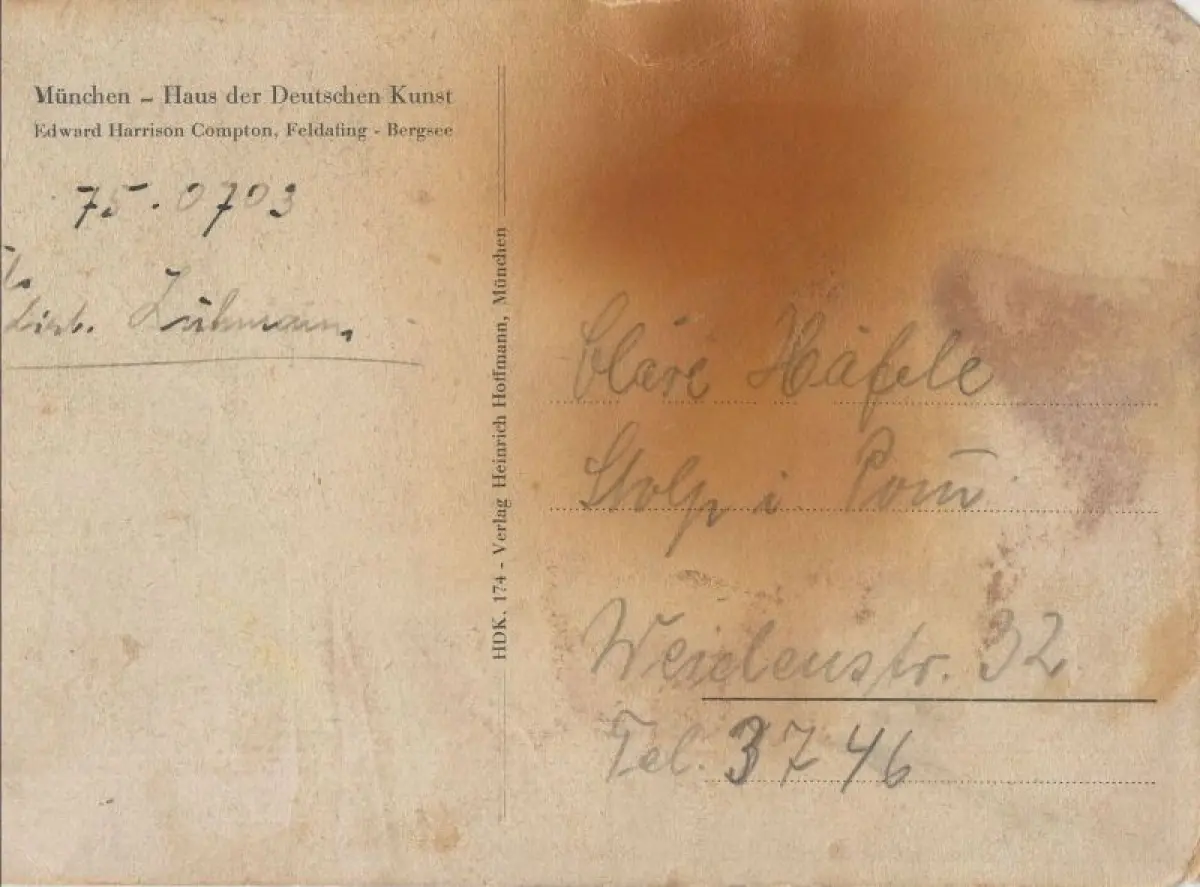 München – Haus der Deutschen Kunst
Edward Harrison Compton, Feldafing - Bergsee
75. 0703
Lührmann,
HDK. 174 - Verlag Heinrich Hoffmann, München
Cläre Häfele
Stolp i Pom̄.
Weidenstr. 32
Tel. 3746